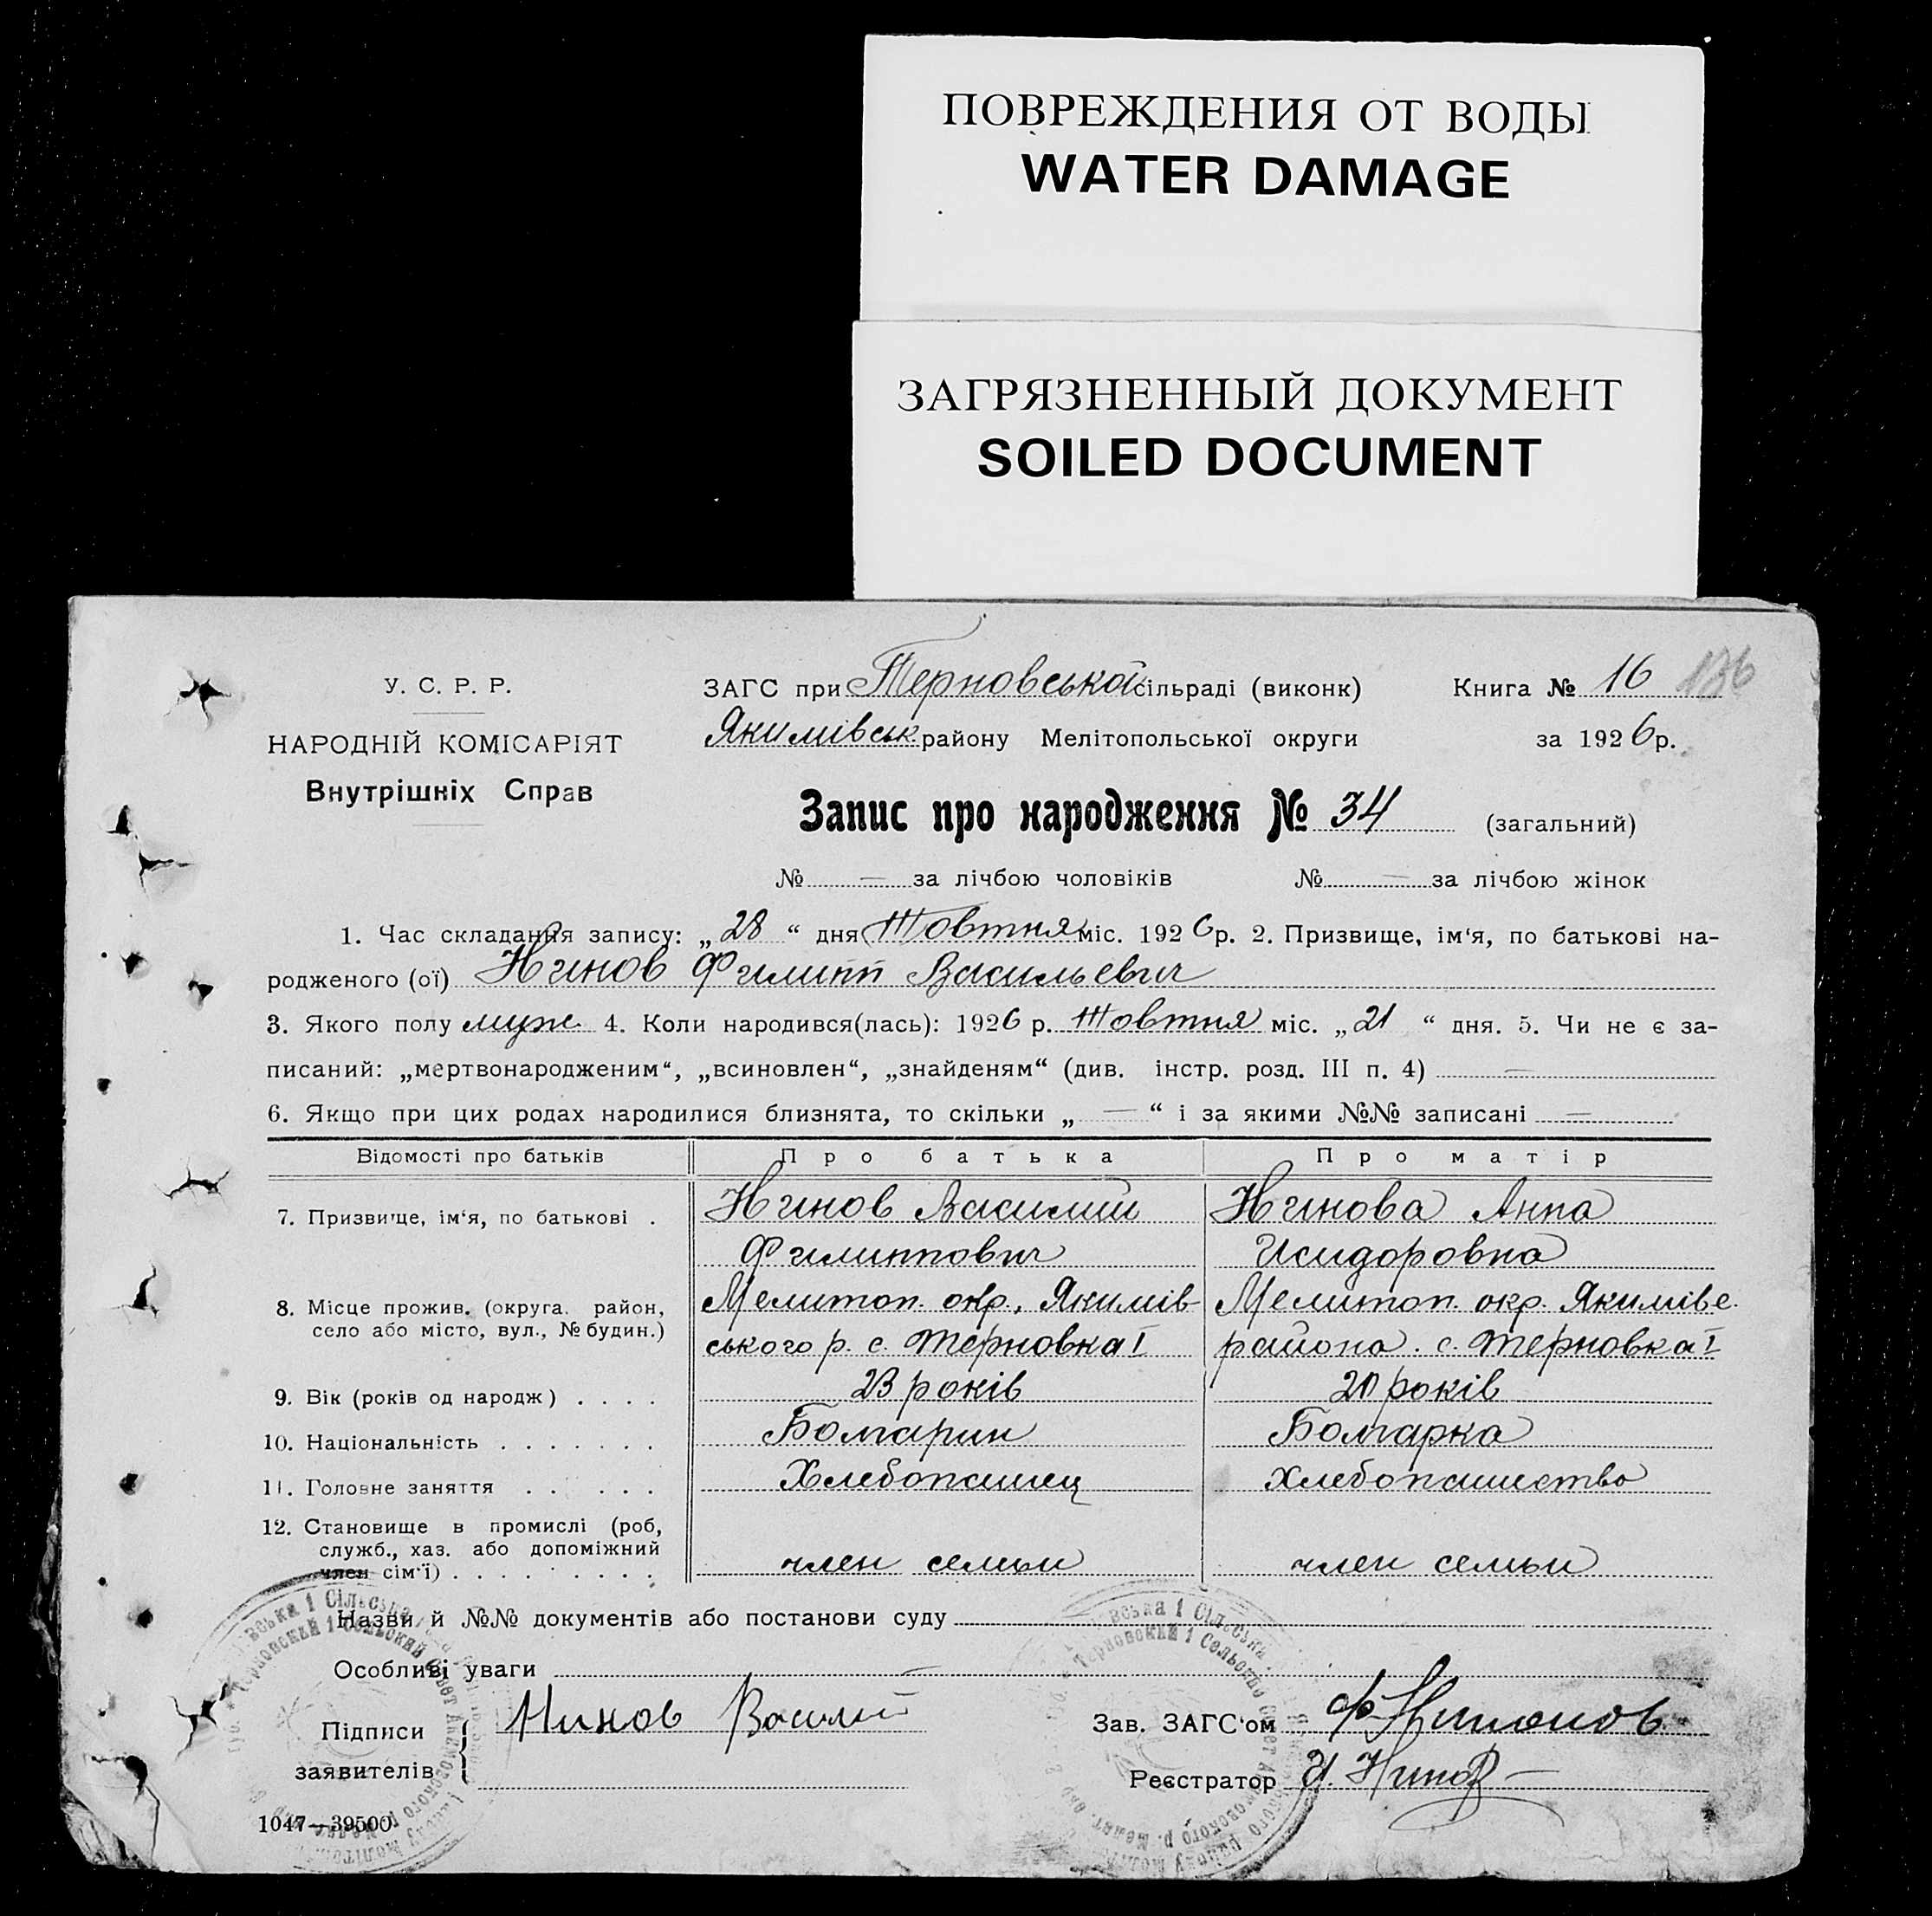 ПОВРЕЖДЕНИЯ ОТ ВОДЫ
WATER DAMAGE
ЗАГРЯЗНЕННЫЙ ДОКУМЕНТ
SOILED DOCUMENT
У. С. Р. Р.
НАРОДНІЙ КОМІСАРІЯТ
Внутрішніх Справ
ЗАГС при Терновській сільраді (виконк)
Якимівськ. району Мелітопольської округи
Книга № 16 136
за 1926 р.
Запис про народження № 34 (загальний)
№ — за лічбою чоловіків № — за лічбою жінок
1. Час складання запису: „28“ дня Жовтня міс. 1926 р. 2. Призвище, ім‘я, по батькові на-
родженого (ої) Нинов Филипп Васильевич
3. Якого полу муж. 4. Коли народився(лась): 1926 р. Жовтня міс. „21“ дня. 5. Чи не є за-
писаний: „мертвонародженим“, „всиновлен“, „знайденям“ (див. інстр. розд. III п. 4) —
6. Якщо при цих родах народилися близнята, то скільки „ — “ і за якими №№ записані —
Відомості про батьків Про батька Про матір
7. Призвище, ім‘я, по батькові . Нинов Василий Нинова Анна
Филиппович Исидоровна
8. Місце прожив. (округа. район, Мелитоп. окр. Якимів- Мелитоп. окр. Якимівс.
село або місто, вул., № будин.) ського р. с. Терновка I района. с. Терновка I
9. Вік (років од народж) . . . . 23 років 20 років
10. Національність . . . . . . . Болгарин Болгарка
11. Головне заняття . . . . . Хлебопашец Хлебопашество
12. Становище в промислі (роб,
служб., хаз. або допоміжний
член сім‘ї) . . . . . . . . . член семьи член семьи
Назви й №№ документів або постанови суду
Особливі уваги —
Підписи Нинов Василий
заявителів
Зав. ЗАГС‘ом
Реєстратор И. Нинов
1047—39500